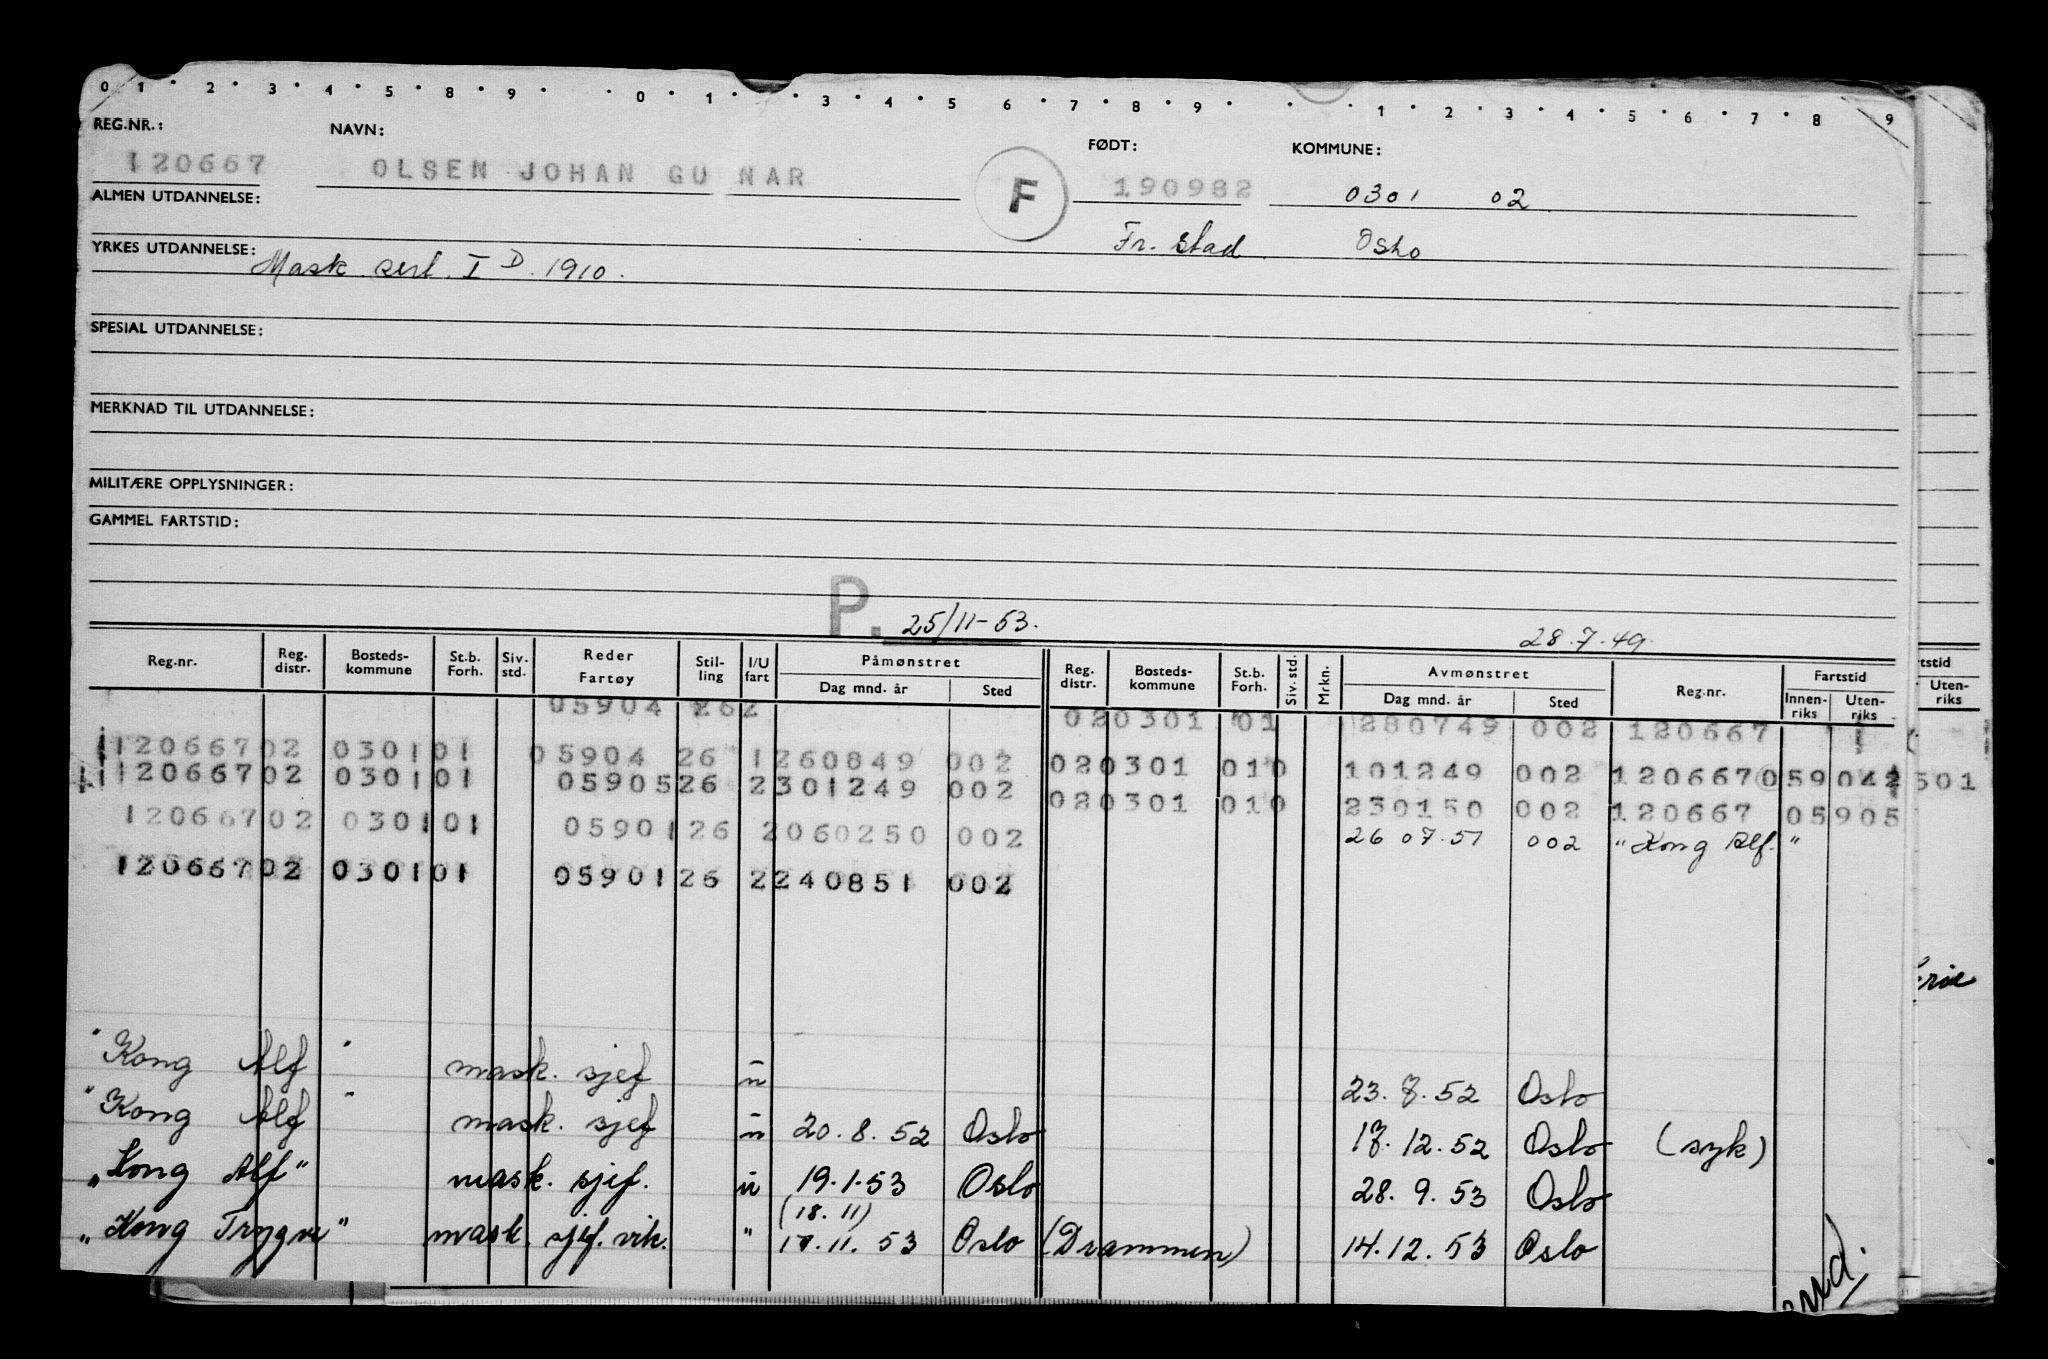 0 1 2 3 4 5 8 9 0 1 3 4 5 6 7 8 9 1 2 3 4 5 6 7 8 9
REG.NR.: NAVN: FØDT: KOMMUNE:
120667 OLSEN JOHAN GU NAR F 190982 0301 02
ALMEN UTDANNELSE:
Fr. stad Oslo
YRKES UTDANNELSE: Mask sert. I D. 1910.
SPESIAL UTDANNELSE:
MERKNAD TIL UTDANNELSE:
MILITÆRE OPPLYSNINGER:
GAMMEL FARTSTID:
P. 25/11-53. 28.7.49.
Reg.nr. Reg. distr. Bosteds-kommune St.b. Forh. Siv. std. Reder Fartøy Stil-ling I/U fart Påmønstret Dag mnd. år Sted Reg. distr. Bosteds-kommune St.b. Forh. Siv. std. Mrkn. Avmønstret Dag mnd. år Sted Reg.nr. Fartstid Innen-riks Uten-riks
05904 262 020301 01 280749 002 120667
120667 02 0301 01 05904 26 1 260849 002 020301 010 101249 002 120667 059042 501
120667 02 0301 01 05905 26 2 301249 002 020301 010 230150 002 120667 05905
120667 02 0301 01 05901 26 2 060250 002 26 07.51 002 "Kong Alf."
120667 02 0301 01 05901 26 2 240851 002
"Kong Alf" mask. sjef u 23.7.52 Oslo
"Kong Alf" mask. sjef u 20.8.52 Oslo 17.12.52 Oslo (syk)
"Kong Alf" mask. sjef. u 19.1.53 Oslo 28.9.53 Oslo
(18.11)
"Kong Trygve" mask. sjef. vik. " 17.11.53 Oslo (Drammen) 14.12.53 Oslo
rtstid
Uten-riks